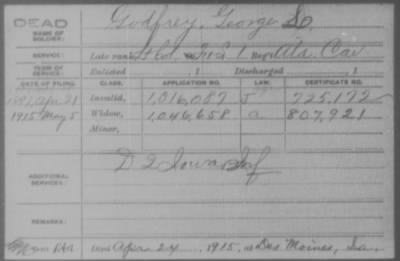 DEAD
NAME OF SOLDIER: Godfrey, George L.
SERVICE: Late rank Lt Col, 1 Reg't Ala. Cav
TERM OF SERVICE: Enlisted , 1 Discharged , 1
DATE OF FILING. CLASS. APPLICATION NO. LAW. CERTIFICATE NO.
1891, Apr 21 Invalid, 1,016,087 725,172
1915 May 5 Widow, 1,046,658 a 807,921
Minor,
ADDITIONAL SERVICES: D 2 Iowa Inf
REMARKS:
Died Apr. 24, 1915, at Des Moines, Ia.